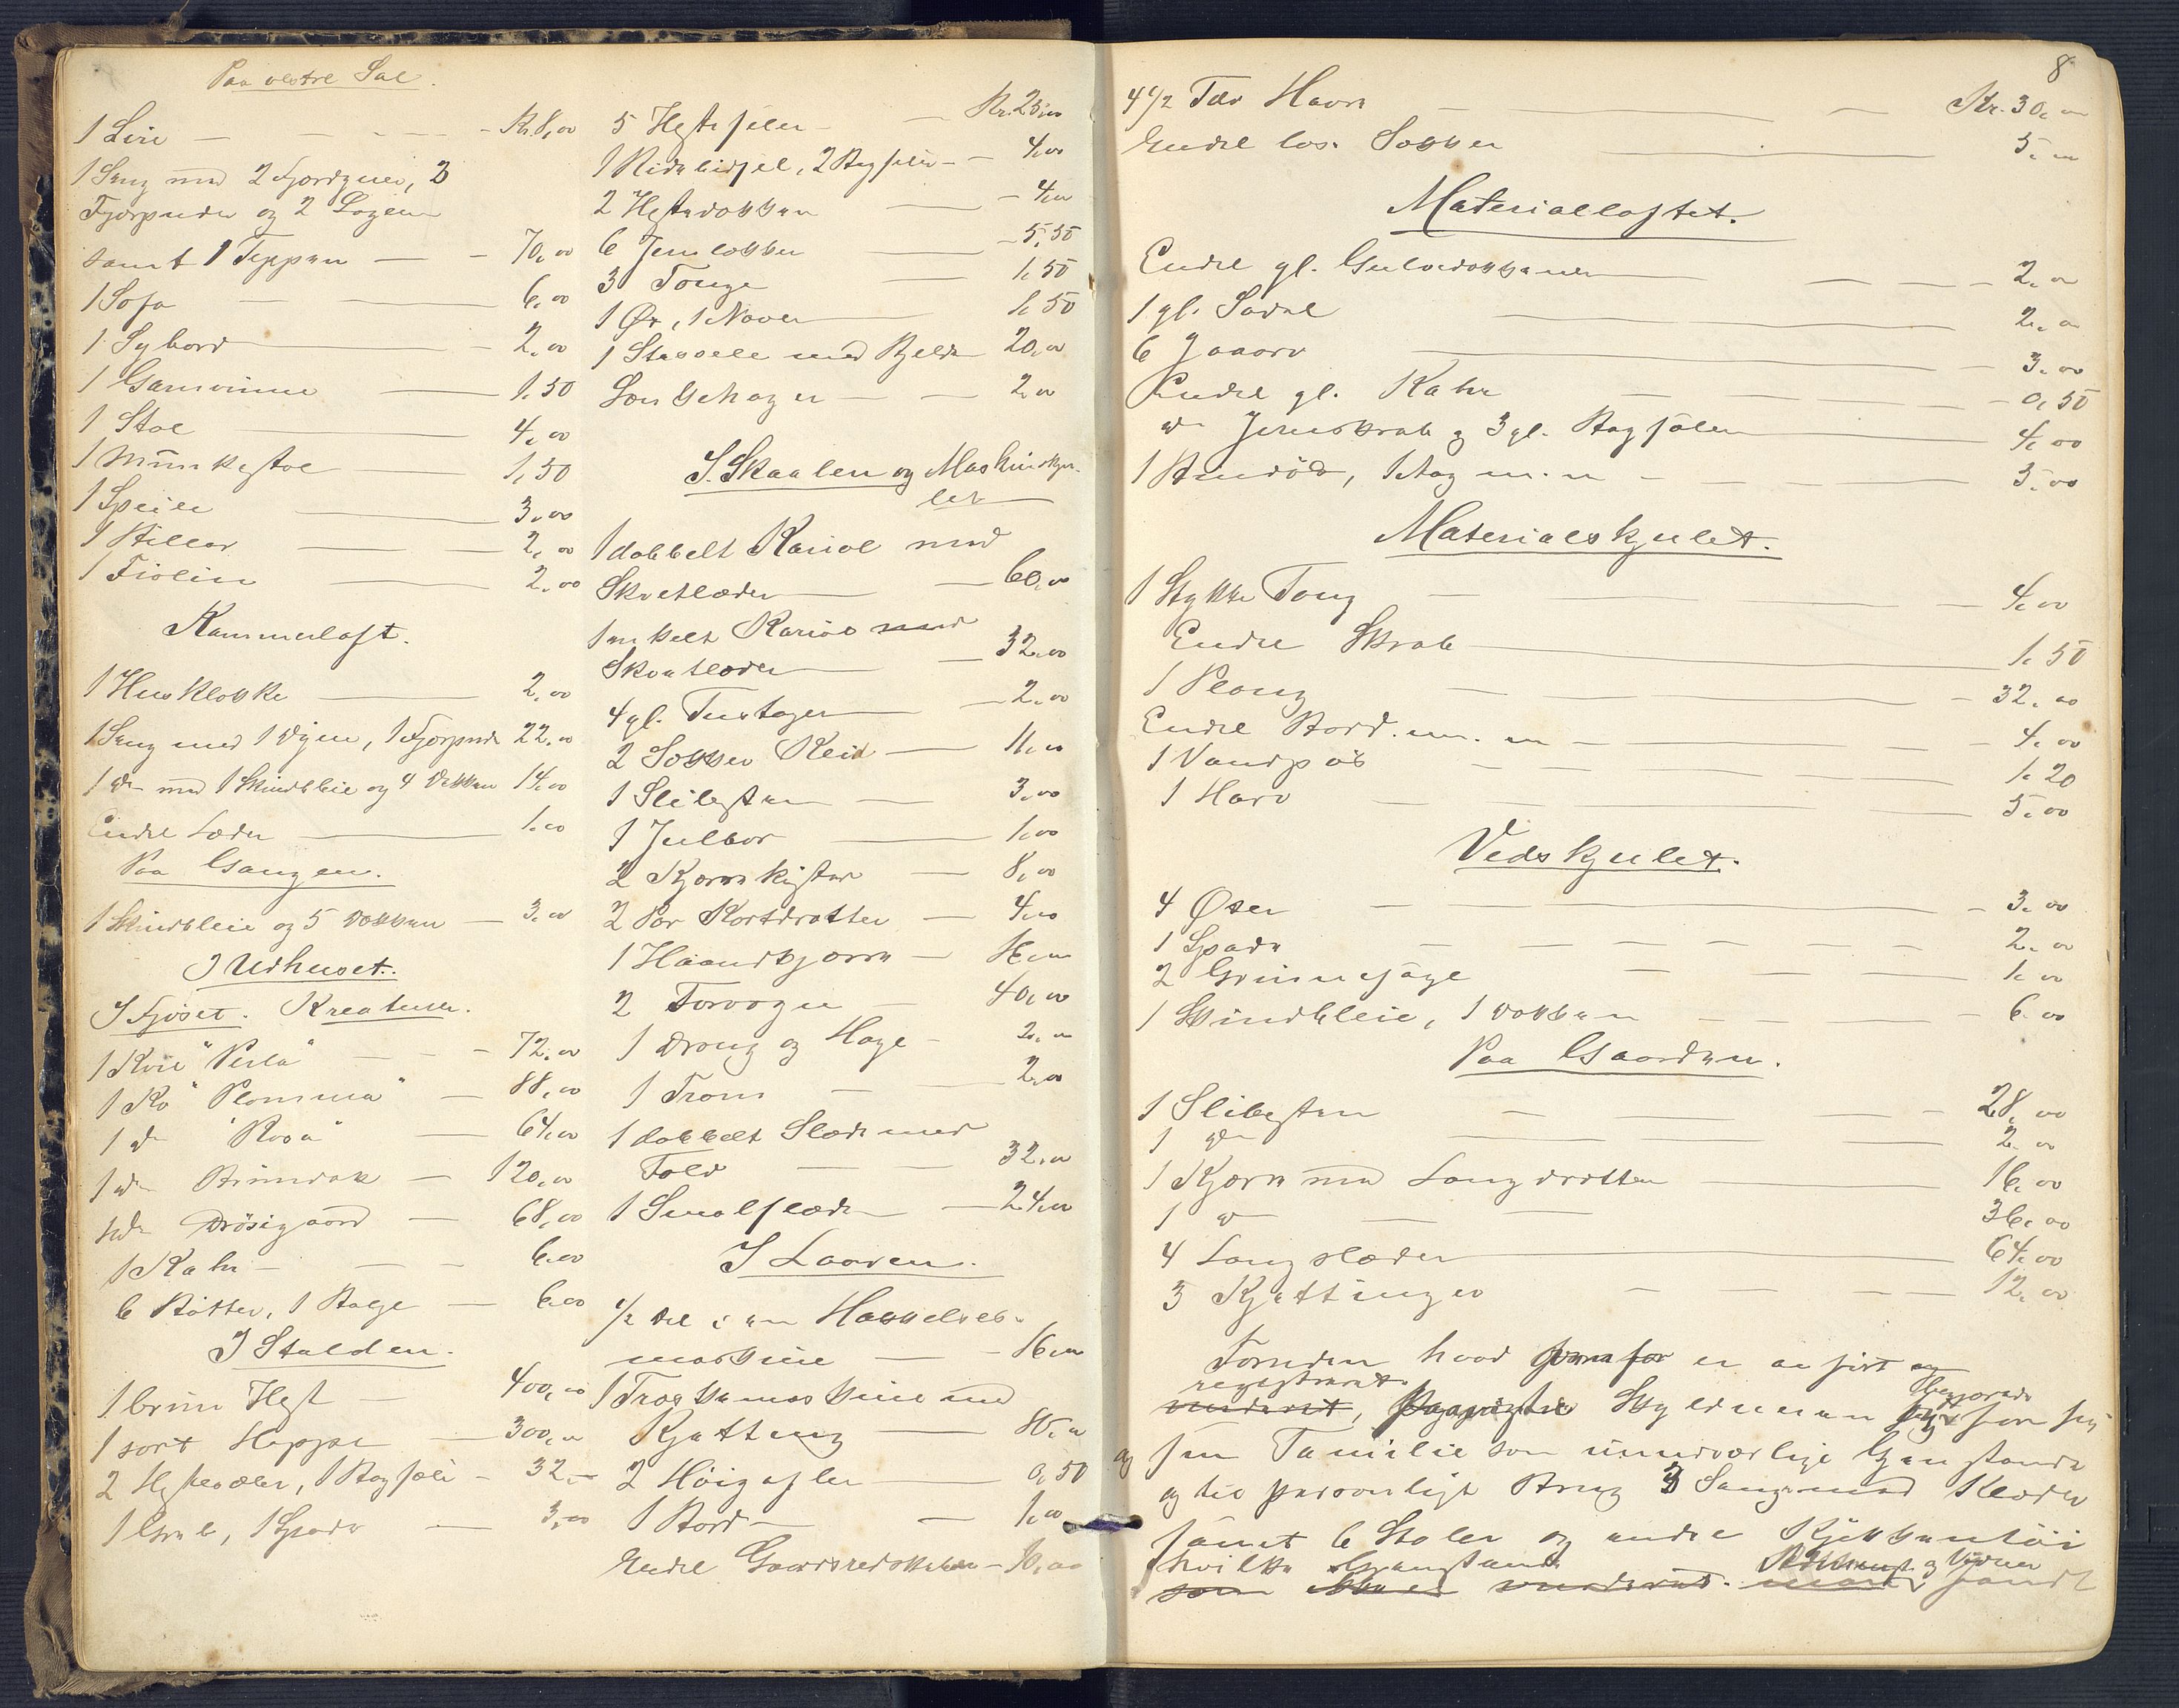 Paa vestre Sal.
1 Liri — Kr. 8,00
1 Seng med 2 Fjordyner, 2
Fjorpuder og 2 Lagen
samt 1 Teppen — 70,00
1 Sofa — 6,00
1 Sybord — 2,00
1 Garnvinne — 1,50
1 Stol — 4,00
1 Munkestol — 1,50
1 Speile — 3,00
1 — 2,00
1 Fiolin — 2,00
Kammerloft.
1 Husklokke — 2,00
1 Seng med 1 Dyne, 1 Fjorpude 22,00
1 do med 1 Skindfleie og 4 Dækken 14,00
Endel Læder — 1,00
Paa Gangen.
1 Skindfleie og 5 Dækken — 3,00
I Udhuset.
I Fjøset. Kreaturer.
1 Kvie "Perla" — 72,00
1 Ko "Plomma" — 88,00
1 do "Rosa" — 64,00
1 do — 120,00
1 do Drösigaard — 68,00
1 Kalv — 6,00
6 Bøtter, 1 Balje — 6,00
I Stalden.
1 brun Hest — 400,00
1 sort Hoppe — 300,00
2 Hestesæler, 1 Bagsæle — 32,—
1 Greb, 1 Spade — 3,00
5 Hestesæler — Kr. 25,00
1 Ridebidsel, 2 Bagsæler — 4,00
2 Hestedækken — 4,00
6 Jernlokker — 5,50
3 Touge — 1,50
1 Øx, 1 Naver — 1,50
1 Stassele med Bjelder 20,00
— 2,00
I Skaalen og Maskinskju-
let
1 dobbelt Kariol med
Skvetlæder — 60,00
1 enkelt Kariol med
Skvetlæder — 32,00
4 gl. Tustager — 2,00
2 Sokker Reid — 11,00
1 Slibesten — 3,00
1 Julbor — 1,00
2 Kjærrekister — 8,00
2 Par Kortdrotter — 4,00
1 Haandkjærre — 16,00
2 Torvogne — 40,00
1 Drong og Hage — 2,00
1 Trom — 2,00
1 dobbelt Slæde med
Fold — 32,00
1 Smalslæde — 24,00
I Laaven.
1/2 Del i en Hakkelses-
maskine — 16,00
1 Troskemaskine med
Kjætting — 80,00
2 Høigafler — 0,50
1 Bord — 1,00
Endel Gaardsredskaber — 10,00
8
4 1/2 Tdr Havre — Kr. 30,00
Endel løs. Sækker — 5,00
Materialloftet.
Endel gl. — 2,00
1 gl. Sadel — 2,00
6 Jaaarv — 3,00
Endel gl. Kahr — 0,50
do Jernskrab og 3 gl. Bagsæler — 4,00
1 , 1 Aag m.m — 3,00
Materialskjulet.
1 Stykke Toug — 4,00
Endel Skrab — 1,50
1 Ploug — 32,00
Endel Bord m.m — 4,00
1 Vandpøs — 1,20
1 Harv — 5,00
Vedskjulet.
4 Øxer — 3,00
1 Spade — 2,00
2 Grinnesage — 1,00
1 Skindfleie, 1 Dækken — 6,00
Paa Gaarden.
1 Slibesten — 28,00
1 do — 2,00
1 Kjærre med Langdrotter — 16,00
1 do — 36,00
4 Langslæder — 64,00
3 Kjættinger — 12,00
Foruden hvad foran for er anført og
registrert Begjærede
vurderet, Skyldneren for sig
og sin Familie som uundværlige Gjenstande
og til personlige Brug 3 Senge med Klæder
samt 6 Stoler og endel Kjøkkentøi
hvilke Gjenstande og Vidner
som ikke er vurderet. fandt